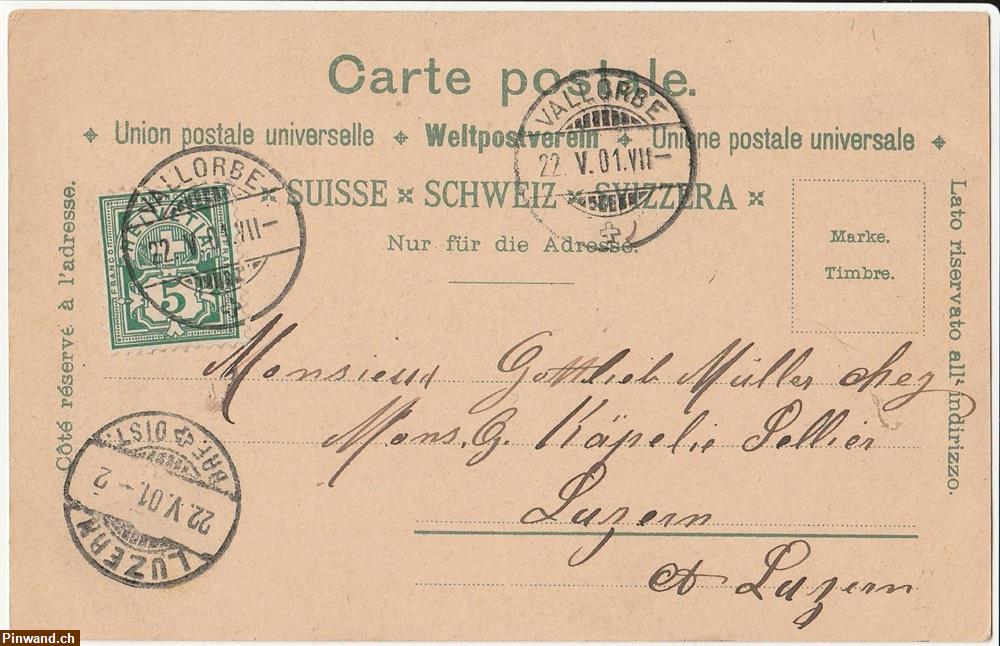 Carte postale.
Union postale universelle Weltpostverein Unione postale universale
SUISSE SCHWEIZ SVIZZERA
Nur für die Adresse.
Côté réservé à l'adresse.
Lato riservato all' indirizzo.
Marke.
Timbre.
VALLORBE
22. V. 01. VII—
VALLORBE
22. V. 01. VII—
FRANCO
5
Monsieur Gottlieb Müller chez
Mons. G. Käpelie Sellier
Luzern
à Luzern
BRF. DIST.
22. V. 01. – 2
LUZERN
Pinwand.ch